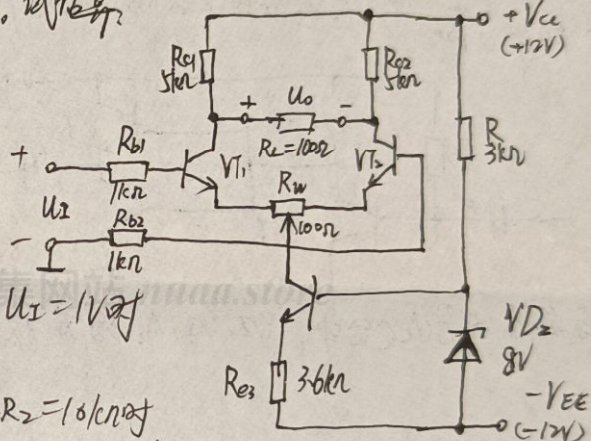 +Vcc
(+12V)
Rc1
5kΩ
Rc2
5kΩ
+ Uo -
RL=100Ω
R
3kΩ
+
Rb1
1kΩ
VT1
VT2
Rw
100Ω
UI
Rb2
1kΩ
-
UI=1V时
VDz
8V
Re3
3.6kΩ
-VEE
(-12V)